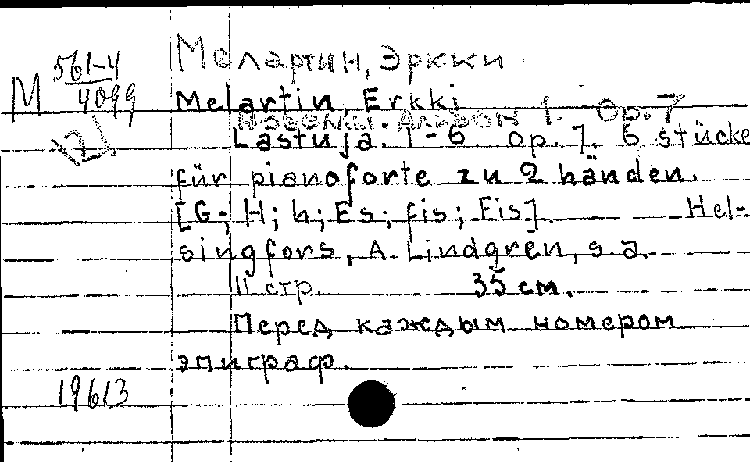 М 561-4
4099
Мелартин, Эркки
Melartin, Erkki
Альбом 1. Op. 7
Lastuja. I-6 op. 7. 6 stücke
für pianoforte zu 2 händen.
[G; H; h; Es; fis; Fis]. Hel-
singfors, A. Lindgren, s.a.
11 стр. 35 см.
Перед каждым номером
эпиграф.
19613